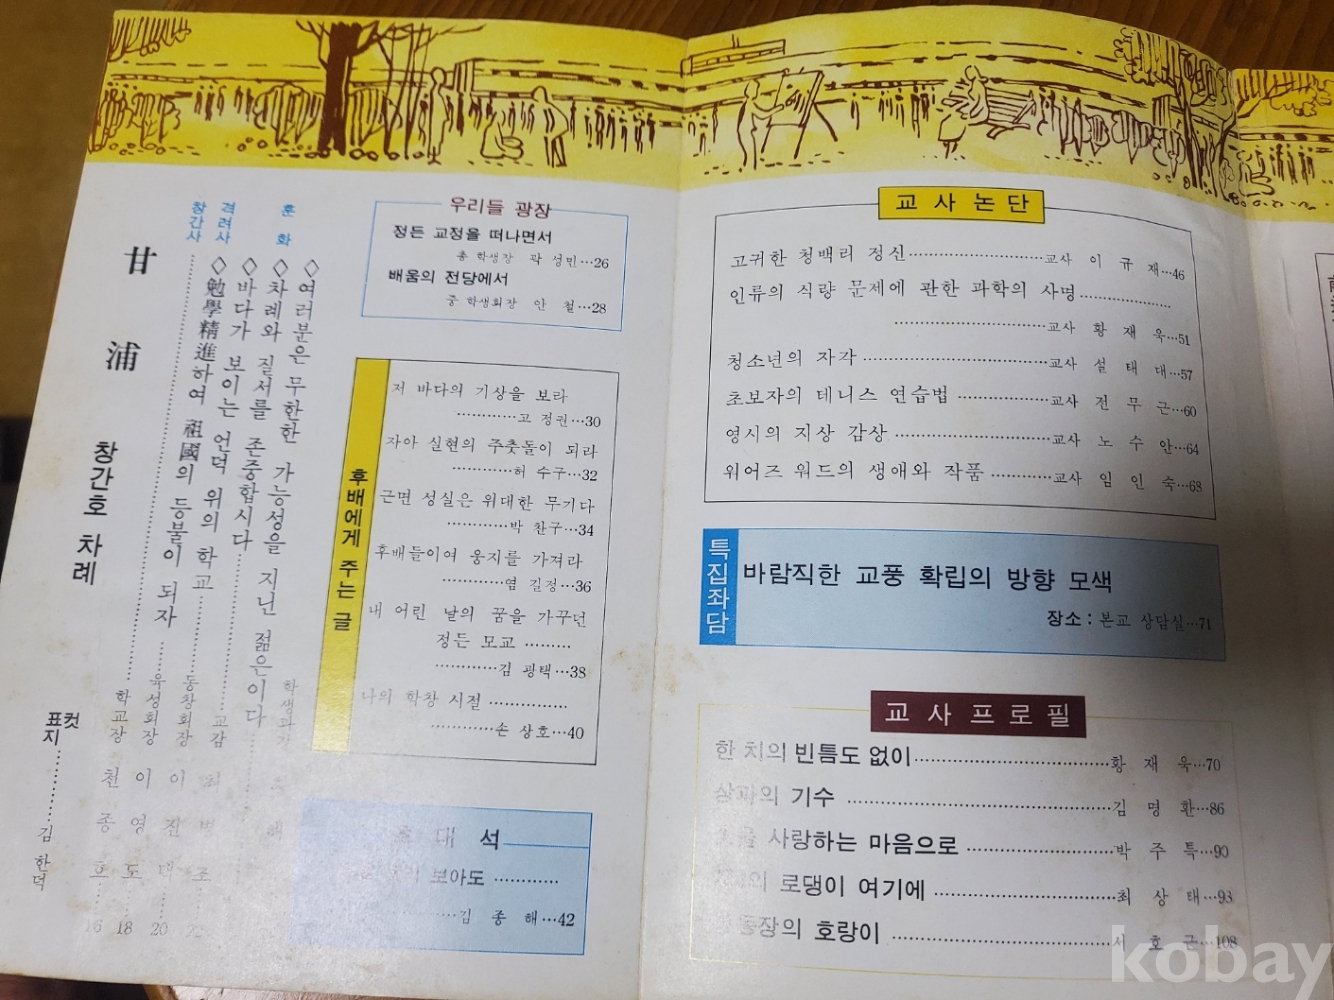 甘浦
창간호 차례
표지
컷
김한덕
창간사
격려사
훈화
학교장 천종흐 16
◇勉學精進하여 祖國의 등불이 되자
육성회장 이영도 18
◇바다가 보이는 언덕 위의 학교
동창회장 이진
20
◇차례와 질서를 존중합시다
교감
22
◇여러분은 무한한 가능성을 지닌 젊은이다
우리들 광장
정든 교정을 떠나면서
총 학생장 곽 성민…26
배움의 전당에서
중 학생회장 안 철…28
후배에게 주는 글
저 바다의 기상을 보라
고 정권…30
자아 실현의 주춧돌이 되라
허 수구…32
근면 성실은 위대한 무기다
박 찬구…34
후배들이여 웅지를 가져라
염 길정…36
내 어린 날의 꿈을 가꾸던
정든 모교
김 광택…38
나의 학창 시절
손 상호…40
초 대 석
보아도
김 종 해…42
교사논단
고귀한 청백리 정신……교사 이 규 재…46
인류의 식량 문제에 관한 과학의 사명……
……교사 황 재 욱…51
청소년의 자각……교사 설 태 대…57
초보자의 테니스 연습법……교사 전 무 근…60
영시의 지상 감상……교사 노 수 안…64
워어즈 워드의 생애와 작품……교사 임 인 숙…68
특집좌담
바람직한 교풍 확립의 방향 모색
장소 : 본교 상담실…71
교사프로필
한 치의 빈틈도 없이……황 재 욱…70
상과의 기수……김 명 환…86
사랑하는 마음으로……박 주 특…90
로댕이 여기에……최 상 태…93
동장의 호랑이……서 호 근…108
kobay